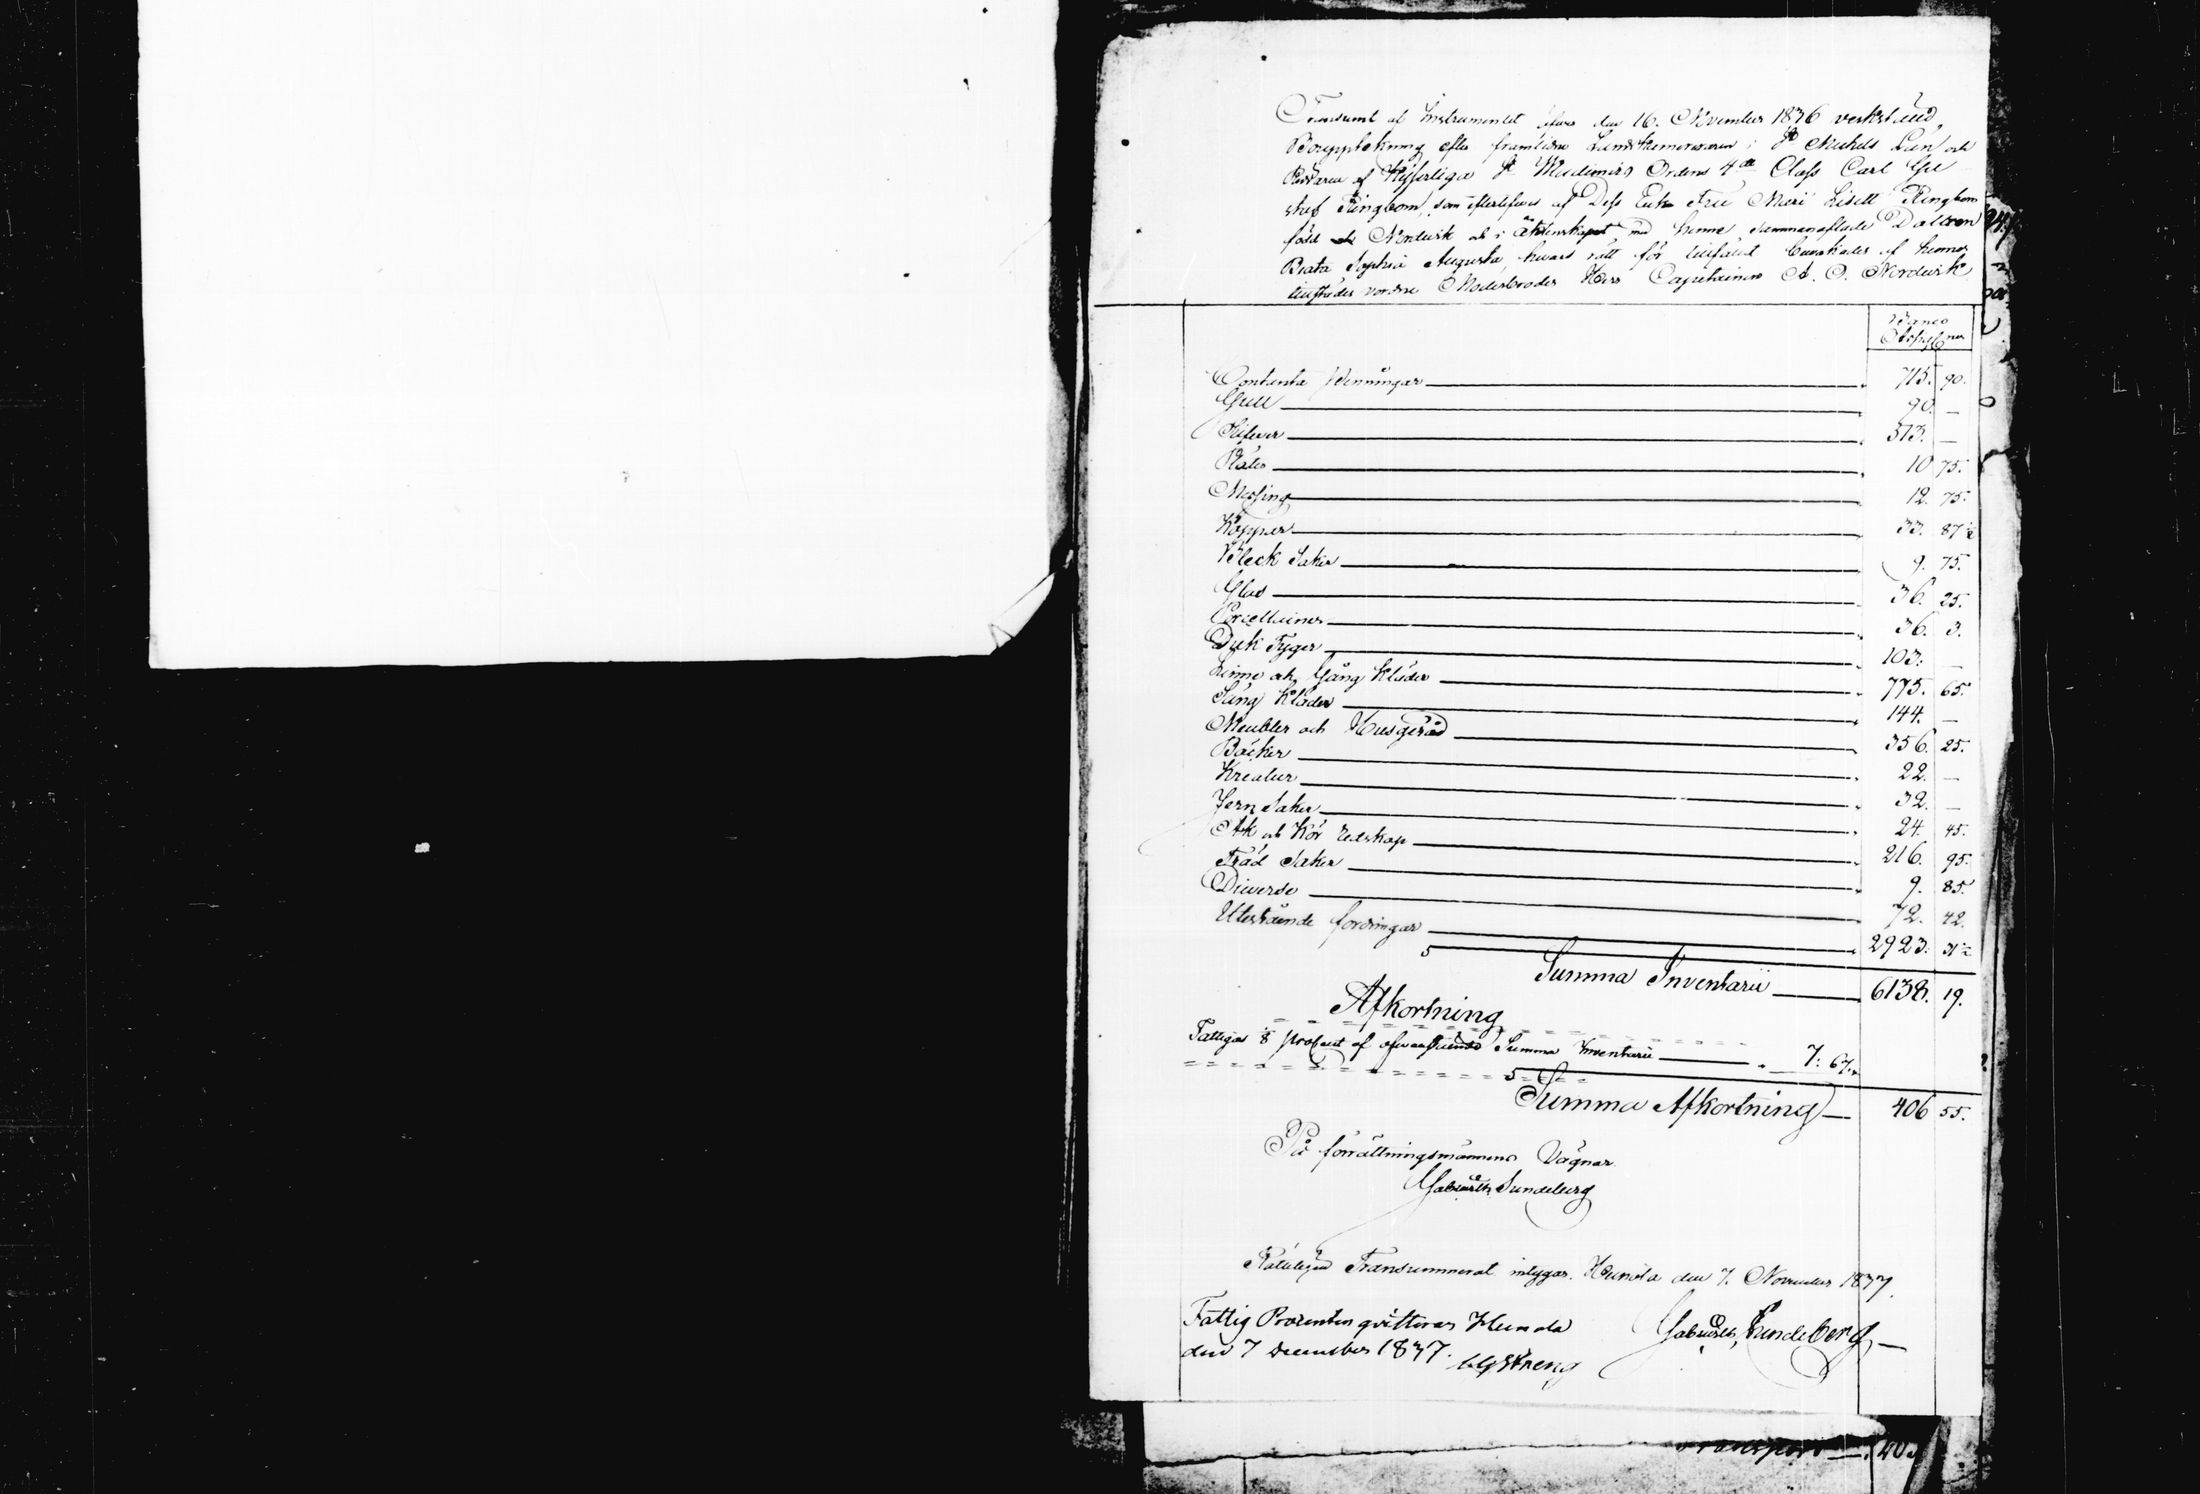 Transumt af Instrumentet öfver den 16. November 1836 verkstäld
Bouppteckning efter framlidne Landtkamereraren i St Michels Län och
Riddaren af Kejserliga St Wladimirs Ordens 4de Class Carl Gu
staf Ringbom, som efterlefves af Dess Enke Fru Mari Lisett Ringbom
född Nordvik och i äktenskapet med henne sammanaflade Dottren
Beata Sophia Augusta hvars rätt för tillfället bevakades af hennes
Moderbroder Herr Capitainen A. O. Nordvik
Banco
Contanta Penningar 715. 90.
Gull 90. —
Silfver 513. —
10 75.
Messing 12. 75.
Koppar 33. 87 1/2
Bleck Saker 9. 75.
Glas 36. 25.
Porcellainer 36. 3.
Duk Tyger 103. —
Linne och Gång Kläder 775. 65.
Säng Kläder 144. —
Meubler och Husgeråd 356. 25.
Böcker 22. —
Kreatur 32. —
Jern Saker 24. 45.
Åk och Kör Redskap 216. 95.
Träd Saker 9. 85.
Diverse 72. 42.
Utestående fordringar 2923. 31 1/2
Summa Inventarii 6138. 19.
Afkortning
Fattigas procent af Summa Inventarii 7. 67.
Summa Afkortning 406 55.
På förrättningsmännens Vägnar
Gabriel Sundeberg
Transumerat intygar. Heinola den 7. November 1837.
Fattig Procenten qvitteras Heinola
den 7 December 1837.
Gabriel Sundeberg
Transport 40